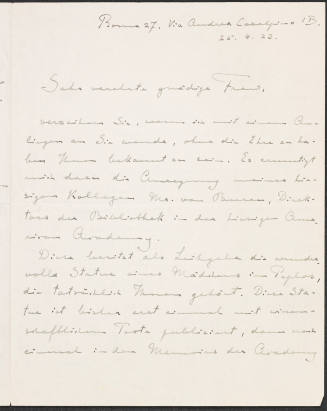 Roma 27, Via Andrea Cesalpino 1B.
25. 4. 23.
Sehr verehrte gnädige Frau,
verzeihen Sie, wenn ich mit einem An-
liegen an Sie wende, ohne die Ehre zu ha-
ben Ihnen bekannt zu sein. Es ermutigt
mich dazu die Anregung meines hie-
sigen Kollegen Mr. van Buren, Direk-
tors der Bibliothek in der hiesigen Ame-
rican Academy.
Diese besitzt als Leihgabe die wunder-
volle Statue eines Mädchens im Peplos,
die tatsächlich Ihnen gehört. Diese Sta-
tue ist bisher erst einmal mit wissen-
schaftlichem Texte publiciert, dann noch
einmal in den Memoirs der Academy